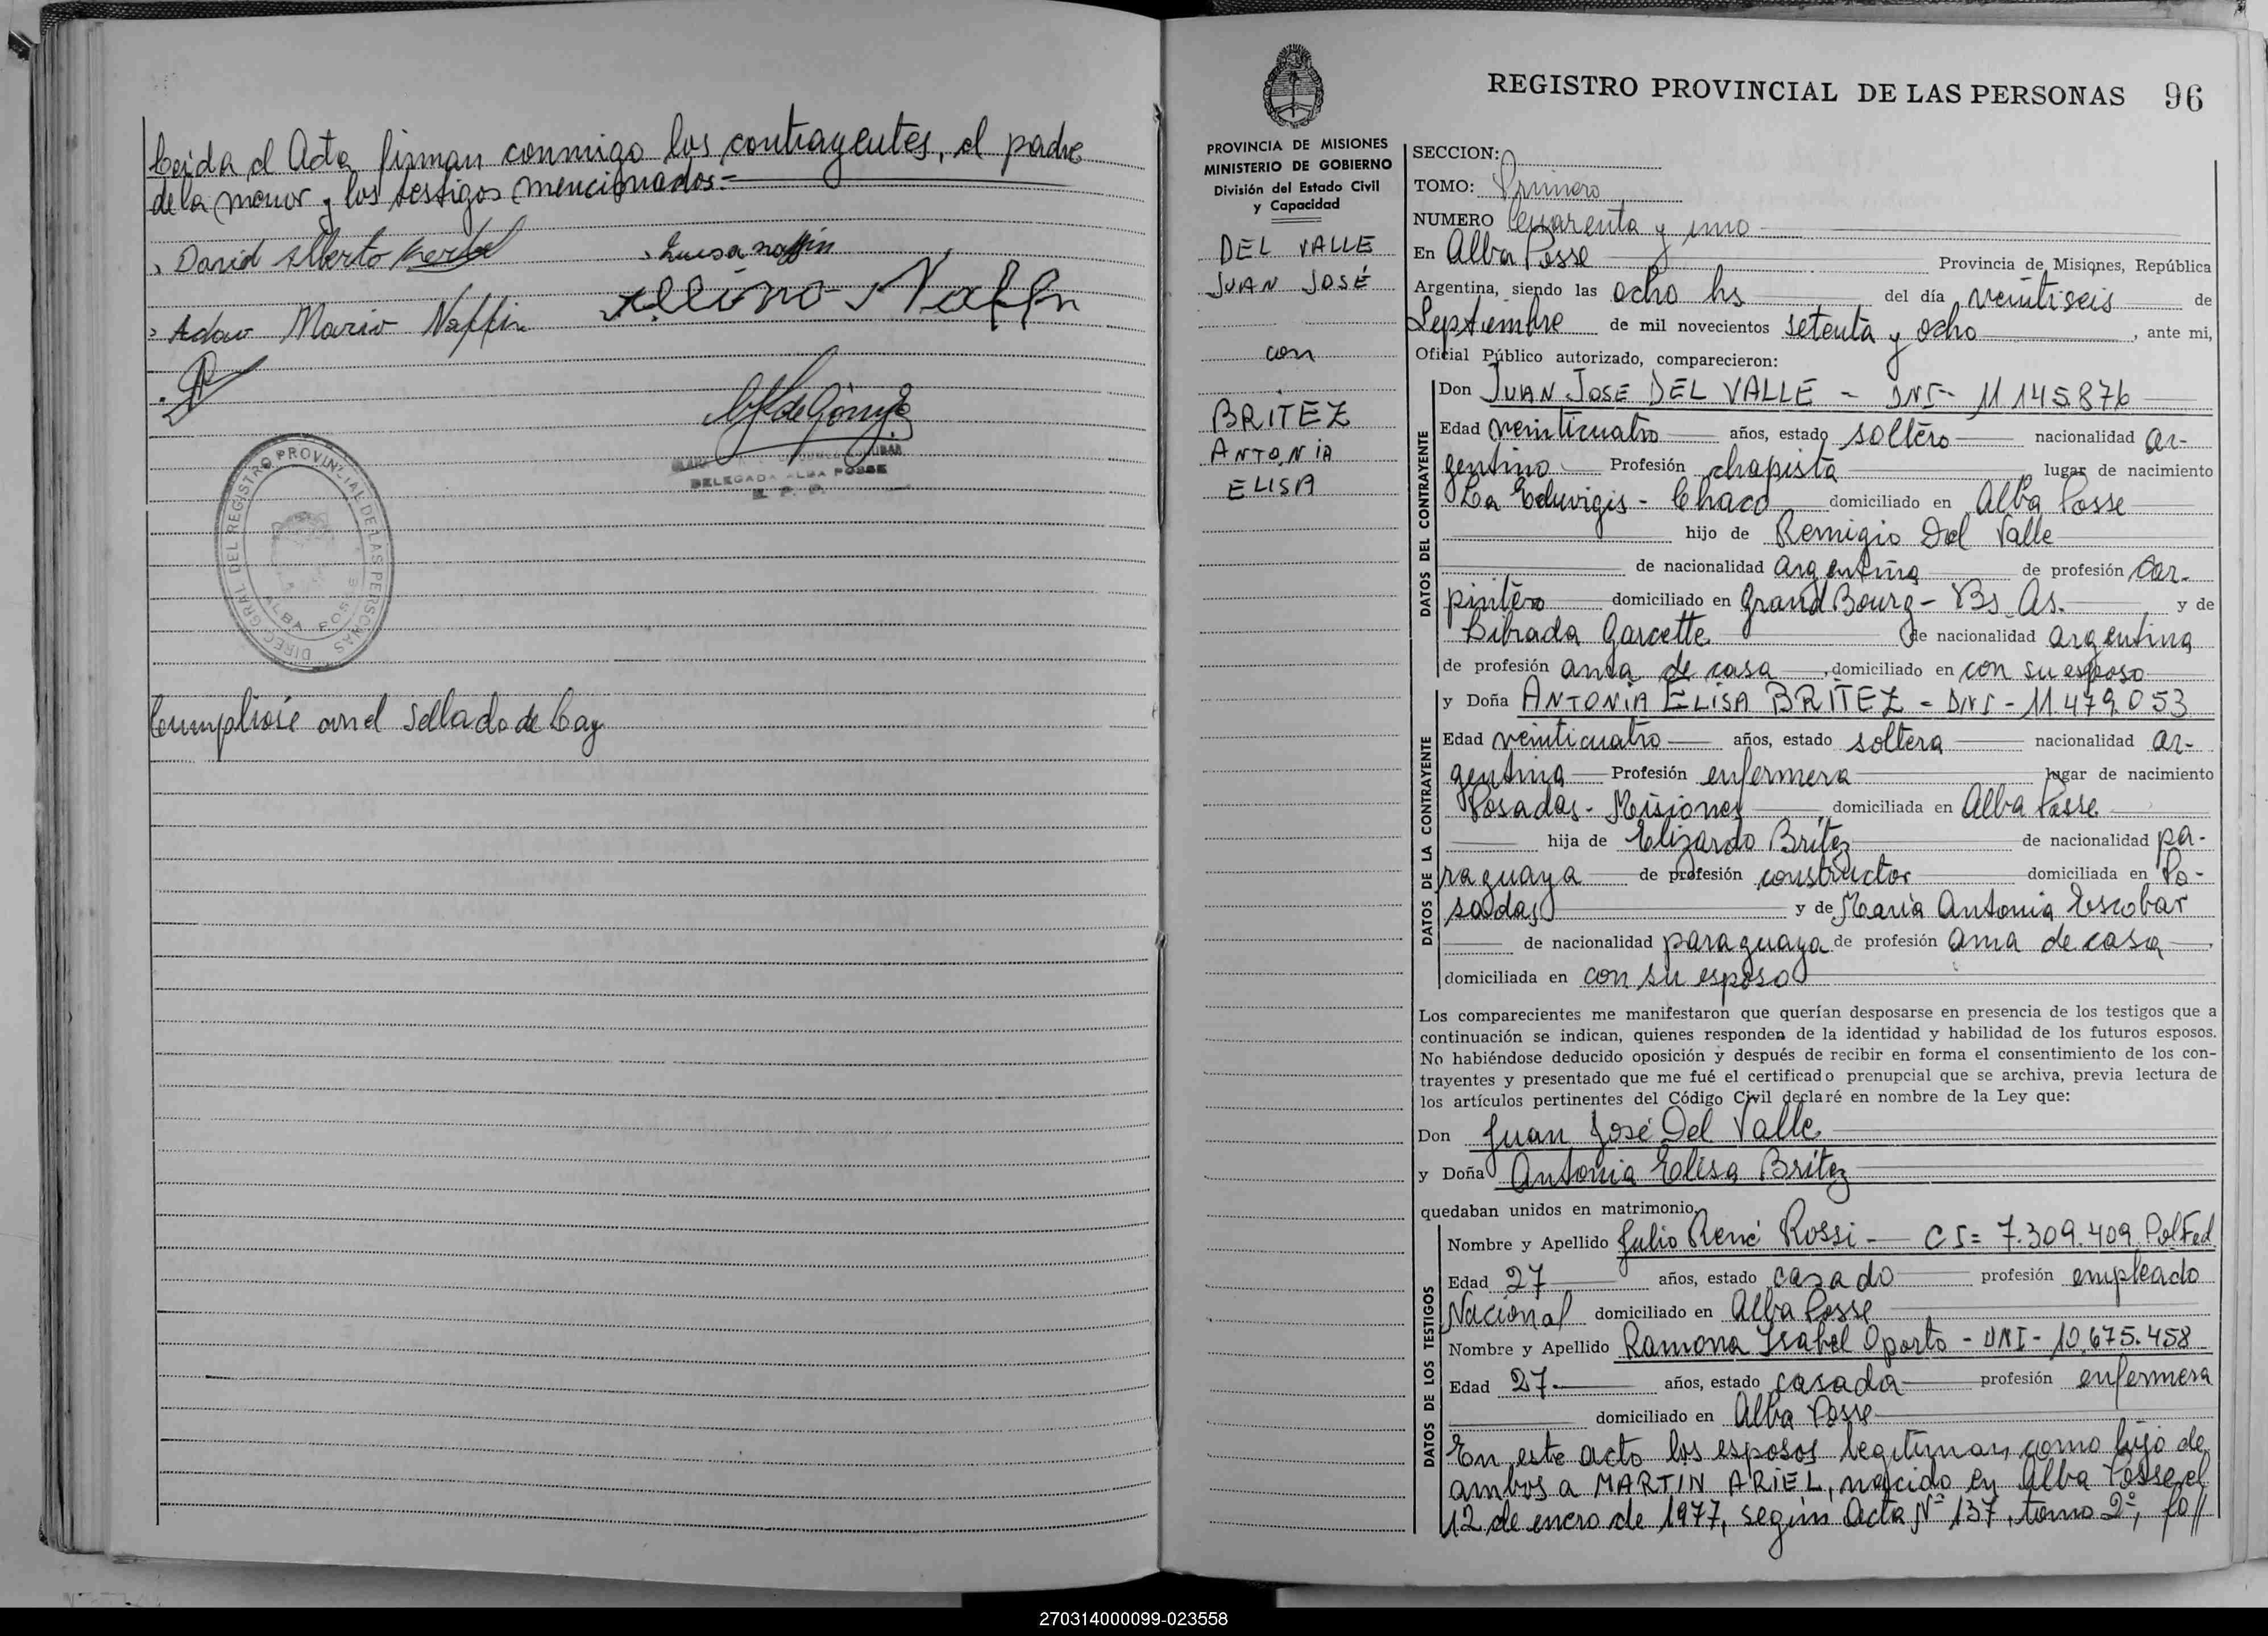 Leida el Acta firman conmigo los contrayentes, el padre
de la menor y los testigos mencionados.-
David Alberto
Luisa Naffin
Naffin
Adan Mario Naffin
DELEGADA ALBA POSSE
R. P. P.
DIREC. GRAL. DEL REGISTRO PROVINCIAL DE LAS PERSONAS
ALBA POSSE
Cumplióse con el Sellado de Ley
REGISTRO PROVINCIAL DE LAS PERSONAS 96
PROVINCIA DE MISIONES
MINISTERIO DE GOBIERNO
División del Estado Civil
y Capacidad
DEL VALLE
JUAN JOSÉ
con
BRITEZ
ANTONIA
ELISA
SECCION:
TOMO: Primero
NUMERO Cuarenta y uno
En Alba Posse Provincia de Misiones, República
Argentina, siendo las ocho hs del día veintiseis de
Septiembre de mil novecientos setenta y ocho, ante mi,
Oficial Público autorizado, comparecieron:
DATOS DEL CONTRAYENTE
Don JUAN JOSE DEL VALLE - DNI- 11.145.876
Edad veinticuatro años, estado soltero nacionalidad ar-
gentino Profesión chapista lugar de nacimiento
La Eduvigis - Chaco domiciliado en Alba Posse
hijo de Remigio Del Valle
de nacionalidad argentina de profesión Car-
pintero domiciliado en Grand Bourg - Bs As. y de
Librada Garcette de nacionalidad argentina
de profesión ama de casa, domiciliado en con su esposo
DATOS DE LA CONTRAYENTE
y Doña ANTONIA ELISA BRITEZ - DNI - 11.479.053
Edad veinticuatro años, estado soltera nacionalidad ar-
gentina Profesión enfermera lugar de nacimiento
Posadas - Misiones, domiciliada en Alba Posse
hija de Elizardo Britez de nacionalidad pa-
raguaya de profesión constructor domiciliada en Po-
sadas y de María Antonia Escobar
de nacionalidad paraguaya de profesión ama de casa,
domiciliada en con su esposo
Los comparecientes me manifestaron que querían desposarse en presencia de los testigos que a
continuación se indican, quienes responden de la identidad y habilidad de los futuros esposos.
No habiéndose deducido oposición y después de recibir en forma el consentimiento de los con-
trayentes y presentado que me fué el certificado prenupcial que se archiva, previa lectura de
los artículos pertinentes del Código Civil declaré en nombre de la Ley que:
Don Juan José Del Valle
y Doña Antonia Elisa Britez
quedaban unidos en matrimonio.
DATOS DE LOS TESTIGOS
Nombre y Apellido Julio René Rossi - CI= 7.309.409. Pol Fed
Edad 27 años, estado casado profesión empleado
Nacional domiciliado en Alba Posse
Nombre y Apellido Ramona Isabel Oporto - DNI - 10.675.458
Edad 27 años, estado casada profesión enfermera
domiciliado en Alba Posse
En este acto los esposos legitiman como hijo de
ambos a MARTIN ARIEL, nacido en Alba Posse el
12 de enero de 1977, según Acta Nº 137, tomo 2º, fo//
270314000099-023558